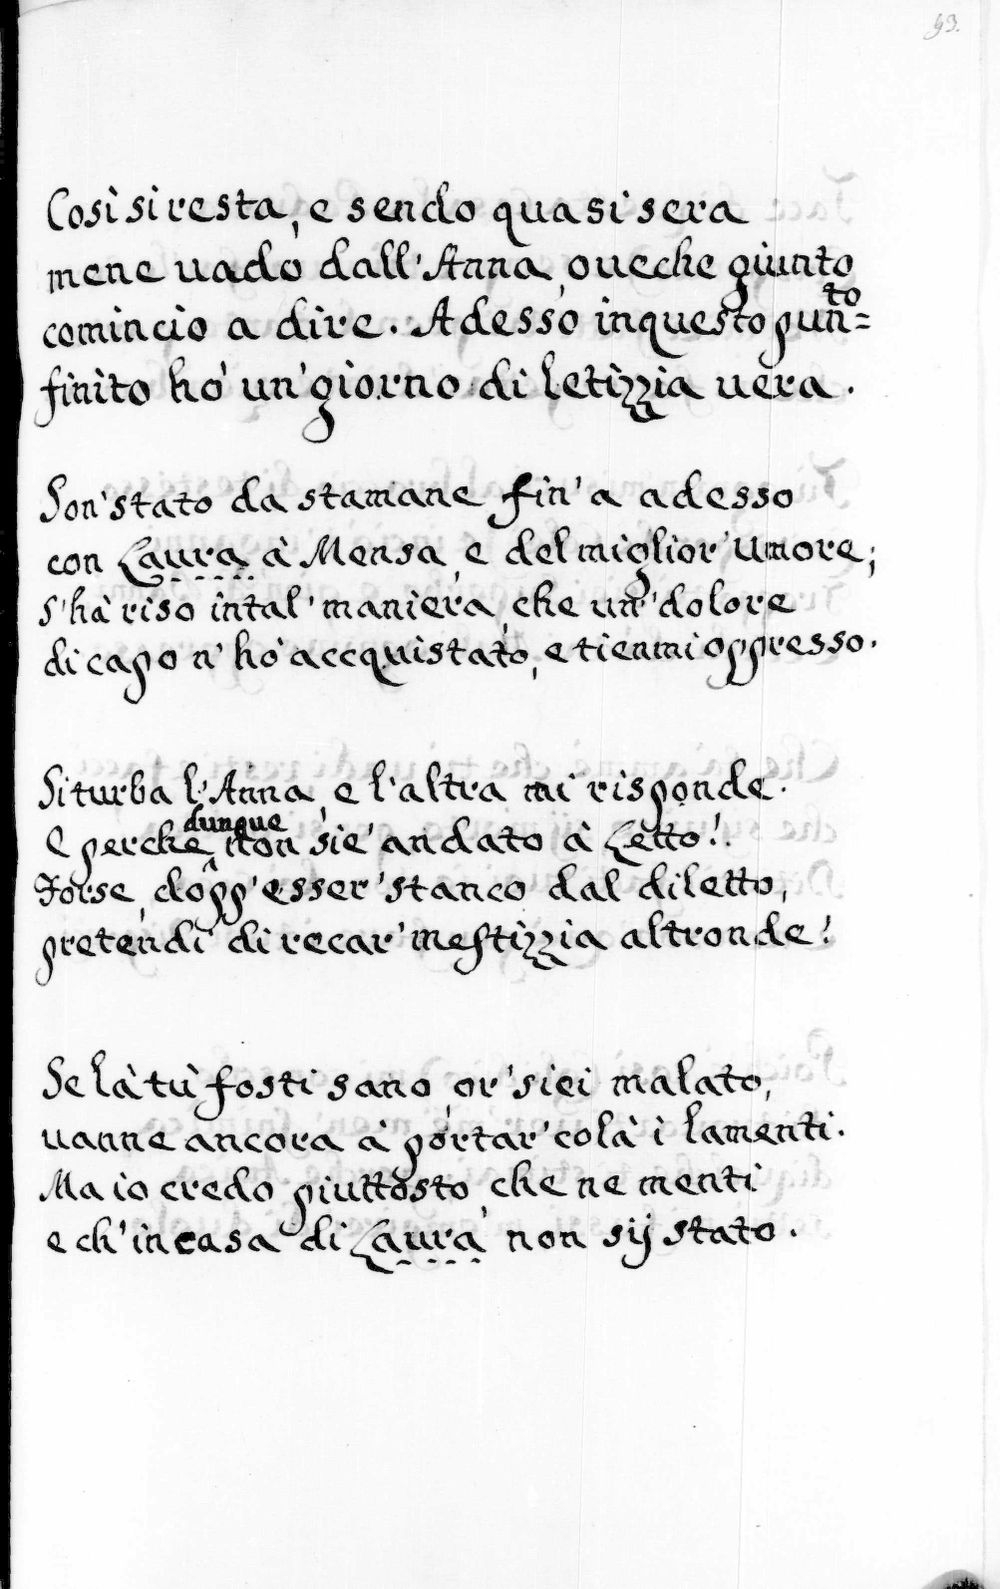 93.
Cosi si resta, e sendo quasi sera
mene uado dall'Anna, oueche giunto
comincio a dire. Adesso in questo pun=to
finito hò un'giorno di letizzia uera.
Son'stato da stamane fin'a adesso
con Laura à Mensa, e del miglior'umore;
s'hà riso in tal'maniera, che un'dolore
di capo n'hò accquistato, e tienmi oppresso.
Si turba l'Anna, e l'altra mi risponde.
E perche dunque non sie'andato à Letto!
Forse, dopp'esser'stanco dal diletto,
pretendi di recar'mestizzia altronde!
Se là tù fosti sano, or'siei malato,
uanne ancora à portar'colà i lamenti.
Ma io credo piuttosto, che ne menti
e ch'in casa di Laura, non sij stato.